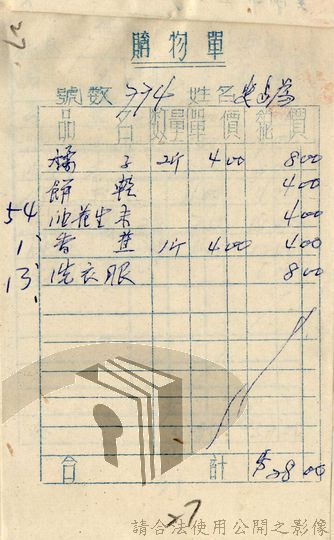 27
購物單
號數 774 姓名
品名 數量 單價 總價
橘子 2斤 400 800
餅乾 400
54 油花生米 400
1 香蕉 1斤 400 400
13 洗衣服 800
合計 $2800
27
請合法使用公開之影像